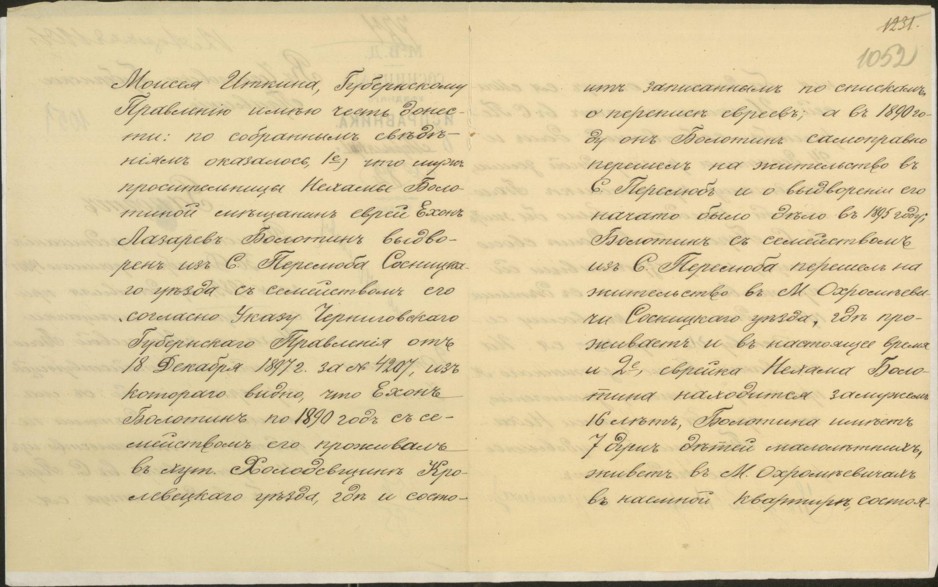 Моисея Иткина, Губернскому
Правленію имѣю честь донес-
ти: по собраннымъ свѣдѣ-
ніямъ оказалось, 1е, что мужъ
просительницы Нехамы Боло-
тиной мѣщанинъ еврей Ехонъ
Лазаревъ Болотинъ выдво-
ренъ изъ С. Перелюба Сосницка-
го уѣзда съ семействомъ его
согласно Указу Черниговскаго
Губернскаго Правленія отъ
18 Декабря 1897 г. за № 4207, изъ
котораго видно, что Ехонъ
Болотинъ по 1890 годъ съ се-
мействомъ его проживалъ
въ хут. Холодевщинѣ Кро-
левецкаго уѣзда, гдѣ и состо-
1231.
1052
итъ записаннымъ по спискамъ
о переписи евреевъ; а въ 1890 го-
ду онъ Болотинъ самоправно
перешелъ на жительство въ
С. Перелюбъ и о выдвореніи его
начато было дѣло въ 1895 году;
Болотинъ съ семействомъ
изъ С. Перелюба перешелъ на
жительство въ М. Охромѣеви-
чи Сосницкаго уѣзда, гдѣ про-
живаетъ и въ настоящее время
и 2е, еврейка Нехама Боло-
тина находится замужемъ
16 лѣтъ, Болотина имѣетъ
7 душъ дѣтей малолѣтнихъ,
живетъ въ М. Охромѣевичахъ
въ наемной квартирѣ, состоя-